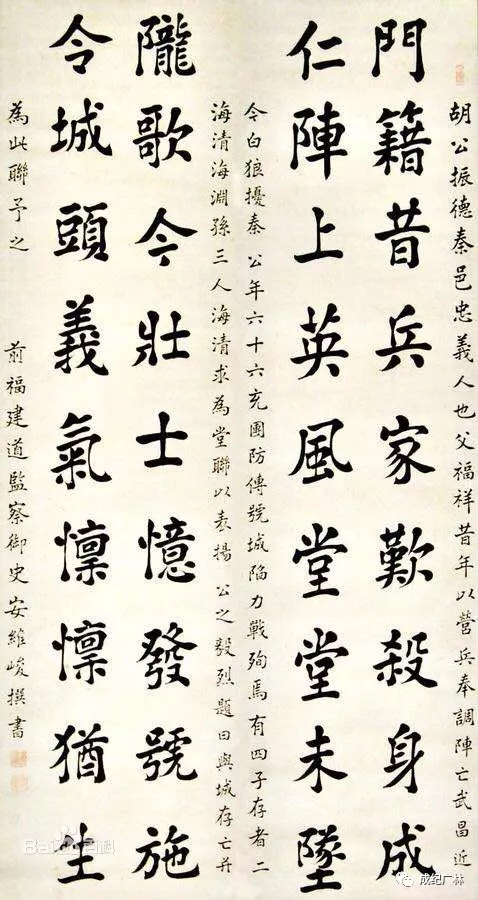 胡公振德秦邑忠義人也父福祥昔年以營兵奉調陣亡武昌近
門籍昔兵家歎殺身成
仁陣上英風堂堂未墜
令白狼擾秦 公年六十六充團防傳號城陷力戰殉焉有四子存者二
海清海淵孫三人海清求為堂聯以表揚 公之毅烈題曰與城存亡并
隴歌今壯士憶發號施
令城頭義氣懍懍猶生
為此聯予之 前福建道監察御史安維峻撰書
Baidu百科
成纪广林